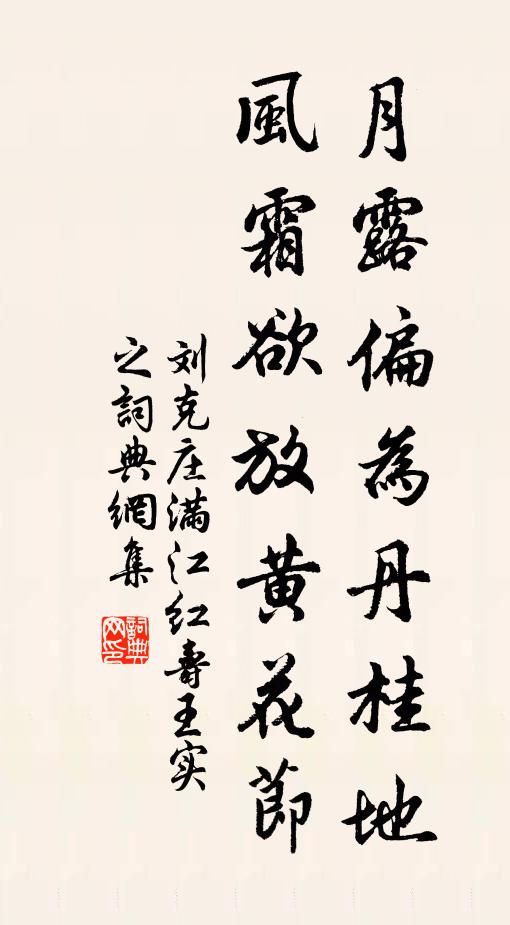 月露偏為丹桂地
風霜欲放黄花節
刘克庄满江红壽王实
之詞典網集
詞典
网印